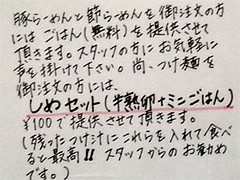 豚らーめんと節らーめんを御注文の方
には ごはん(無料)を 提供させて
頂きます。スタッフの方に お気軽に
声を掛けて下さい。尚、つけ麺を
御注文の方には、
しめセット(半熟卵+ミニごはん)
¥100で提供させて頂きます。
(残ったつけ汁にこれらを入れて食べ
ると最高!! スタッフからのお勧め
です。)